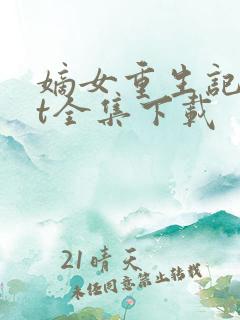 嫡女重生记
t全集下载
21晴天
未经同意禁止转载